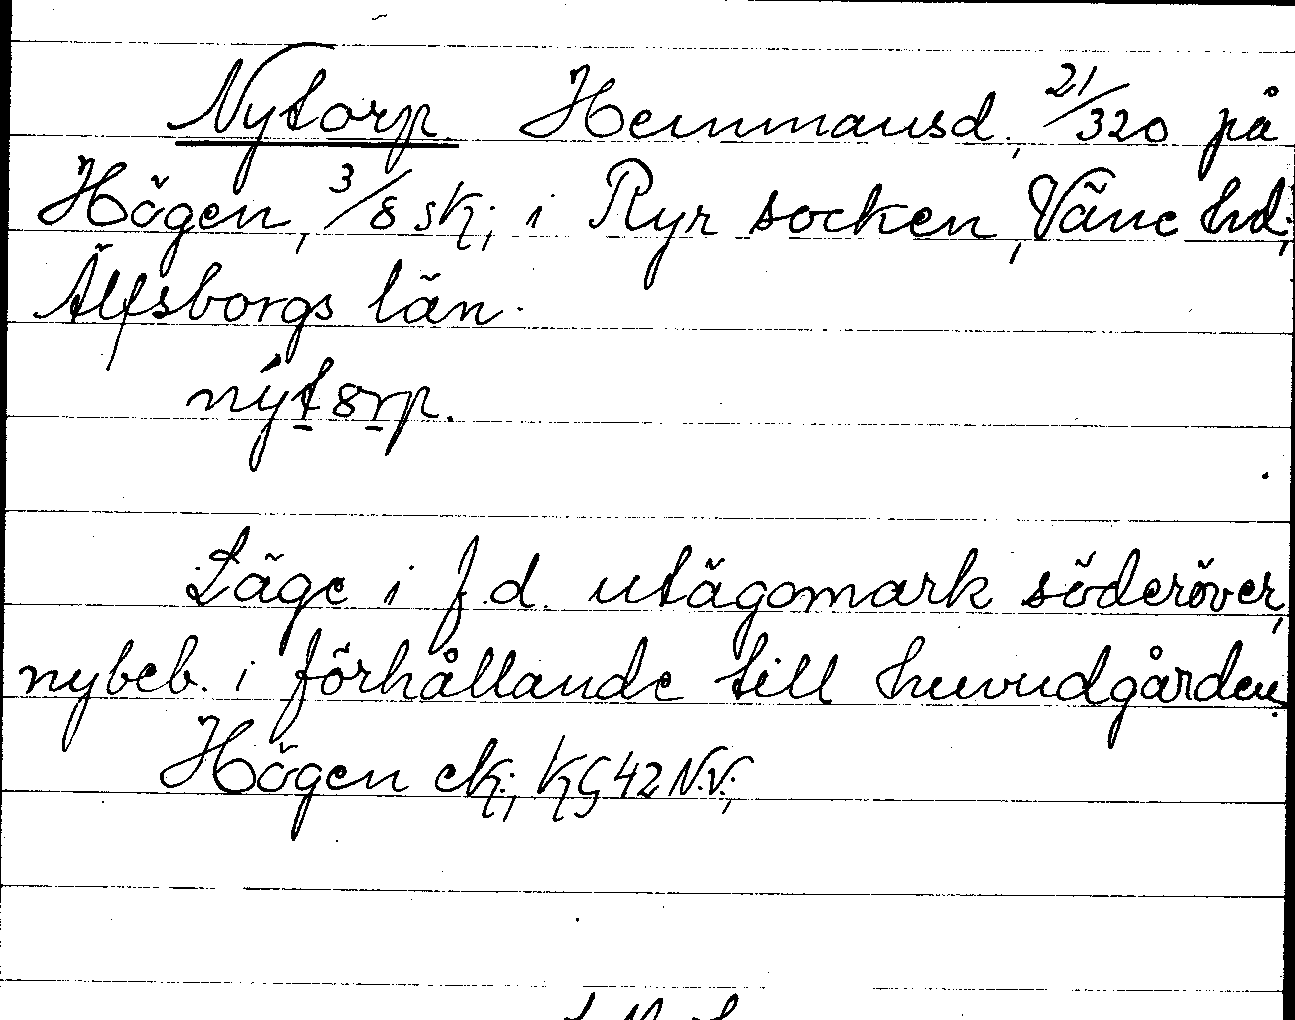 Nytorp Hemmansd, 21/320 på
Högen, 3/8 sk; i Ryr socken, Väne hd;
Älfsborgs län.
nýt8rp.
Läge i f.d. utägomark söderöver,
nybeb. i förhållande till huvudgården
Högen ek; KG 42 N.V.;